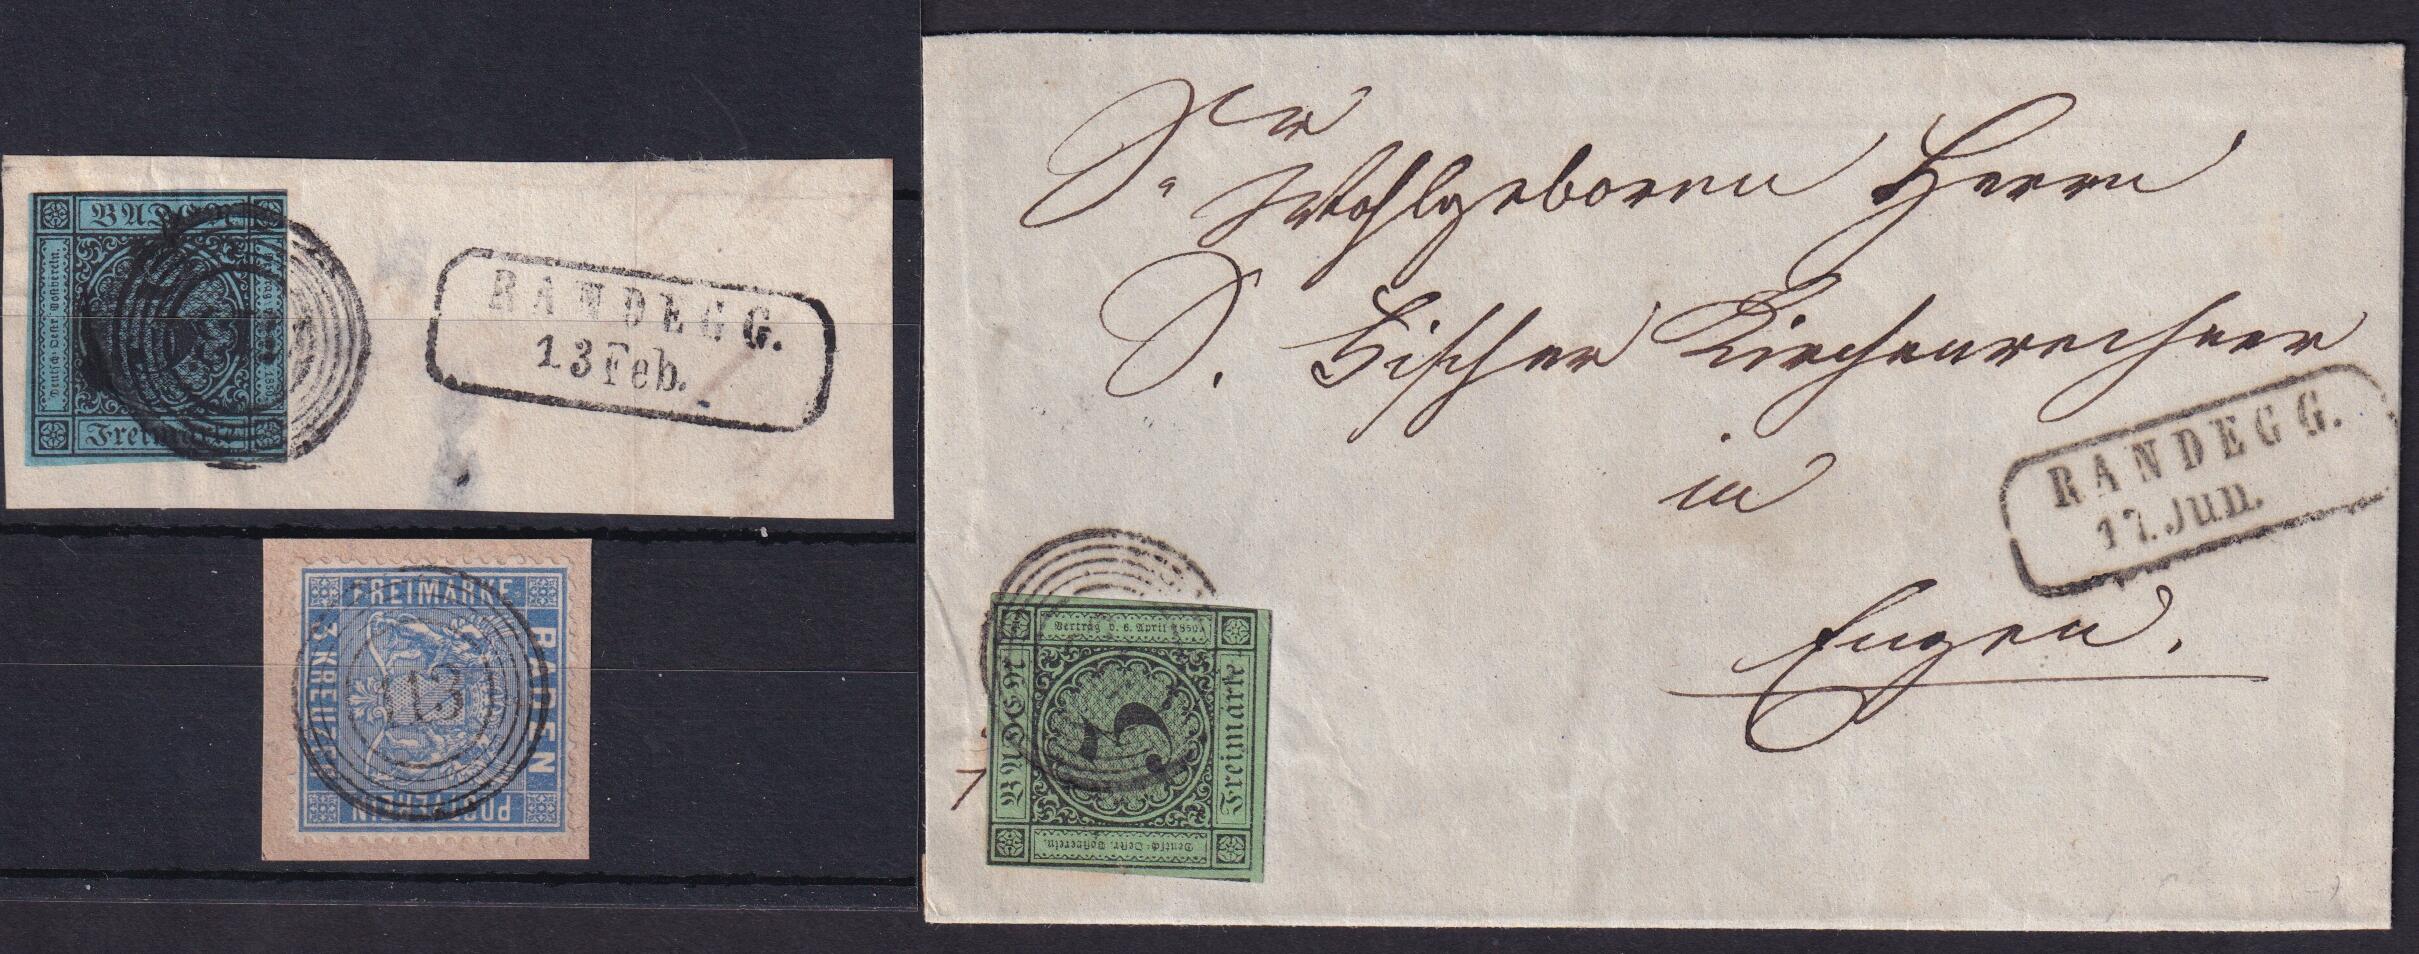 BADEN
Deutsch-Oestr. Postverein.
Freimarke
RANDEGG.
13 Feb.
FREIMARKE
BADEN
3 KREUZER
POSTVEREIN
113
Wohlgeboren Herrn
Fischer Kirchenrechner
in
Engen.
RANDEGG.
17. Jun.
Vertrag v. 6. April 1850.
BADEN
3
Freimarke
Deutsch-Oestr. Postverein.
7